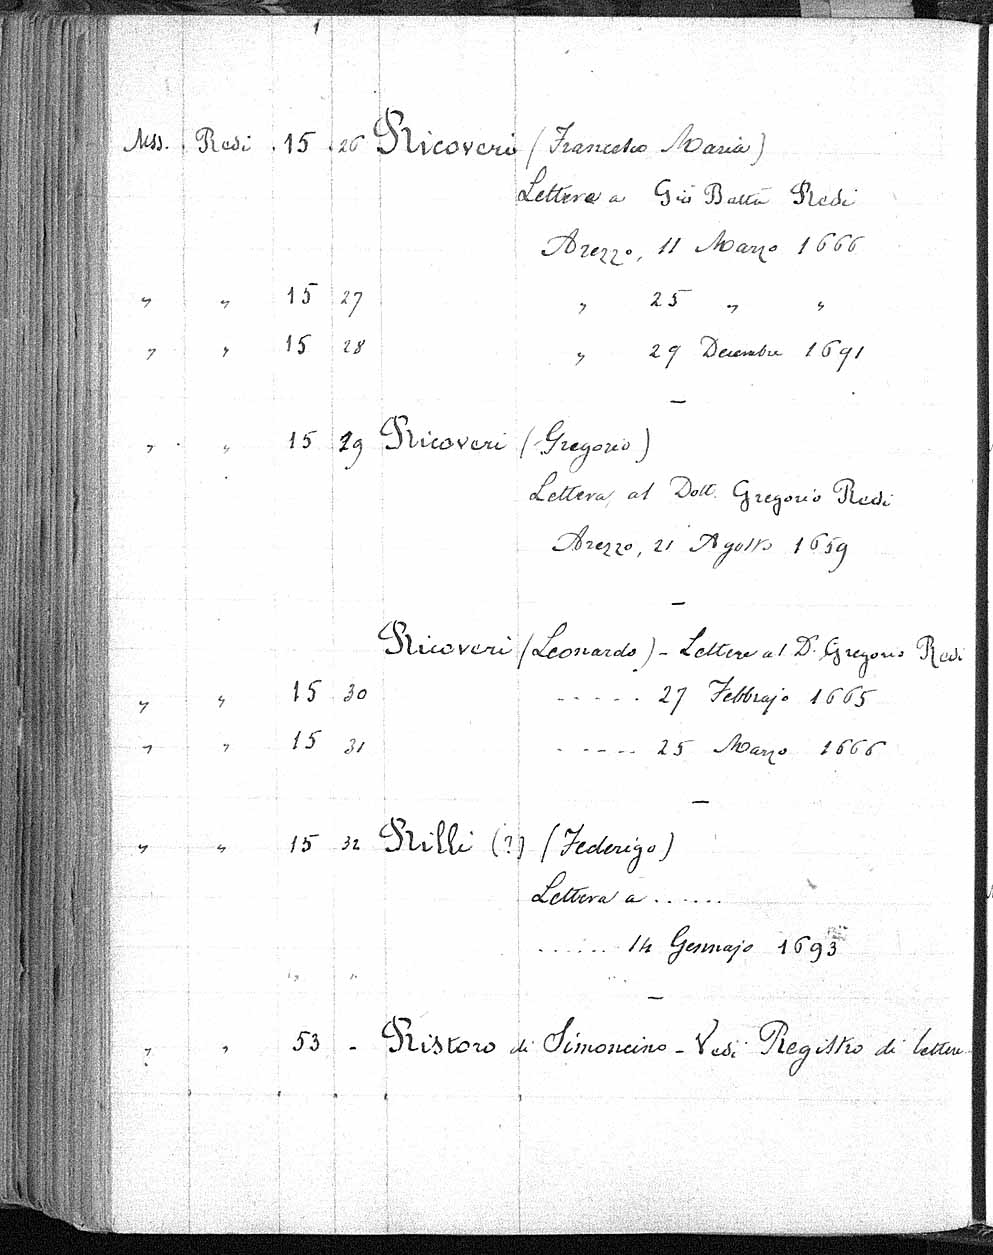 1
Mss. Redi . 15 . 26 Ricoveri (Francesco Maria)
Lettere a Gio Batta Redi
Arezzo, 11 Marzo 1666
" " 15 27 " 25 " "
" " 15 28 " 29 Decembre 1691
–
" " 15 29 Ricoveri (Gregorio)
Lettera al Dott. Gregorio Redi
Arezzo, 21 Agosto 1659
–
Ricoveri (Leonardo) – Lettere al D. Gregorio Redi
" " 15 30 ..... 27 Febbrajo 1665
" " 15 31 ..... 25 Marzo 1666
–
" " 15 32 Rilli (?) (Federigo)
Lettera a ......
...... 14 Gennajo 1693
–
" " 53 - Ristoro di Simoncino – Vedi Registro di lettere